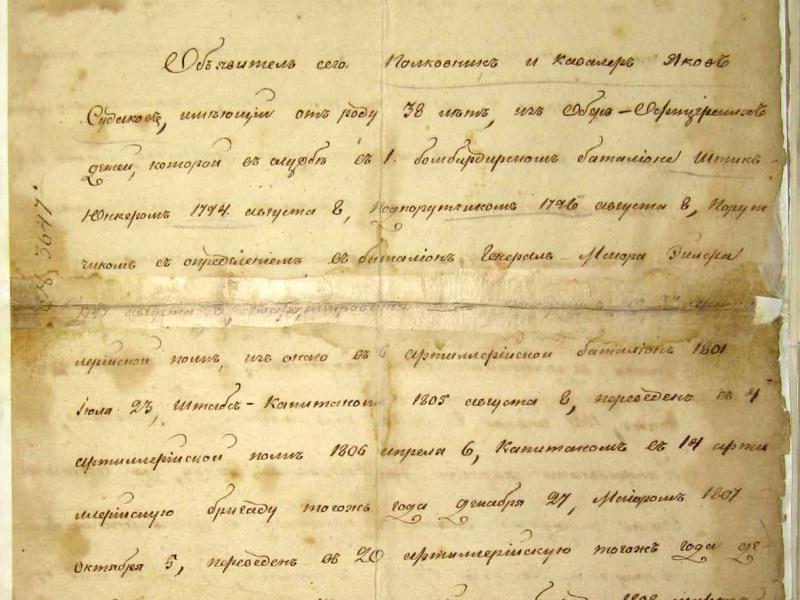 Объявитель сего Полковник и Кавалеръ Яковъ
Судаковъ, имѣющій отъ роду 38 лѣтъ, изъ Оберъ-Офицерскихъ
детей, которой въ службѣ въ 1. бомбардирскомъ баталіонѣ Штик-
Юнкеромъ 1794. августа 8, Подпорутчикомъ 1796 августа 8, Порут
чикомъ съ определеніемъ въ баталіонъ Генералъ-Маіора Эйлера
августа 8,
лерійской полкъ, изъ онаго въ 6 артиллерійской баталіонъ 1801
Іюля 23, Штабсъ-Капитаномъ 1805 августа 8, переведенъ въ 4
артиллерійской полкъ 1806 апреля 6, Капитаномъ въ 14 арти
ллерійскую бригаду тогожъ года декабря 27, Маіоромъ 1807
октября 5, переведенъ въ 20 артиллерійскую тогожъ года де-
3647